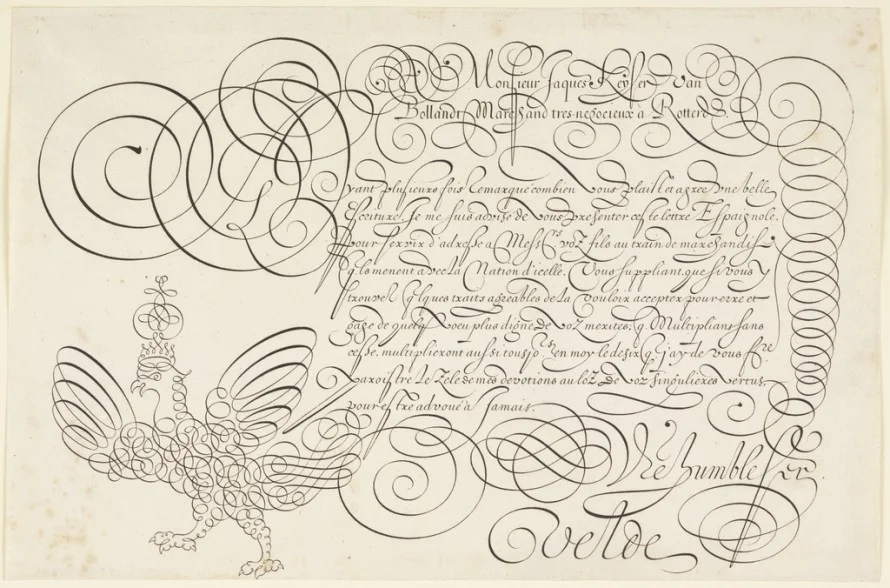 A Monsieur Jaques Keyser van
Bollandt Marchand tres-negocieux à Rotterd.
Ayant plusieurs fois remarque combien vous plaist et agree une belle
Escriture. Je me suis advise de vous presenter ceste lettre Espaignole.
Pour servir d'adresse a Messrs voz filz au train de marchandise
qlz menent avec la Nation d'icelle. Vous suppliant, que si vous y
trouvez qlques traits agreables de la vouloir accepter pour erre et
gage de quelq voeu plus digne de voz merites; q Multiplians sans
cesse, multiplieront aussi tousjrs en moy le desir q J'ay de vous fre
Paroistre le Zele de mes devotions au loz de voz singulieres vertus,
pour estre advoué à Jamais.
Vre humble ser.
Velde